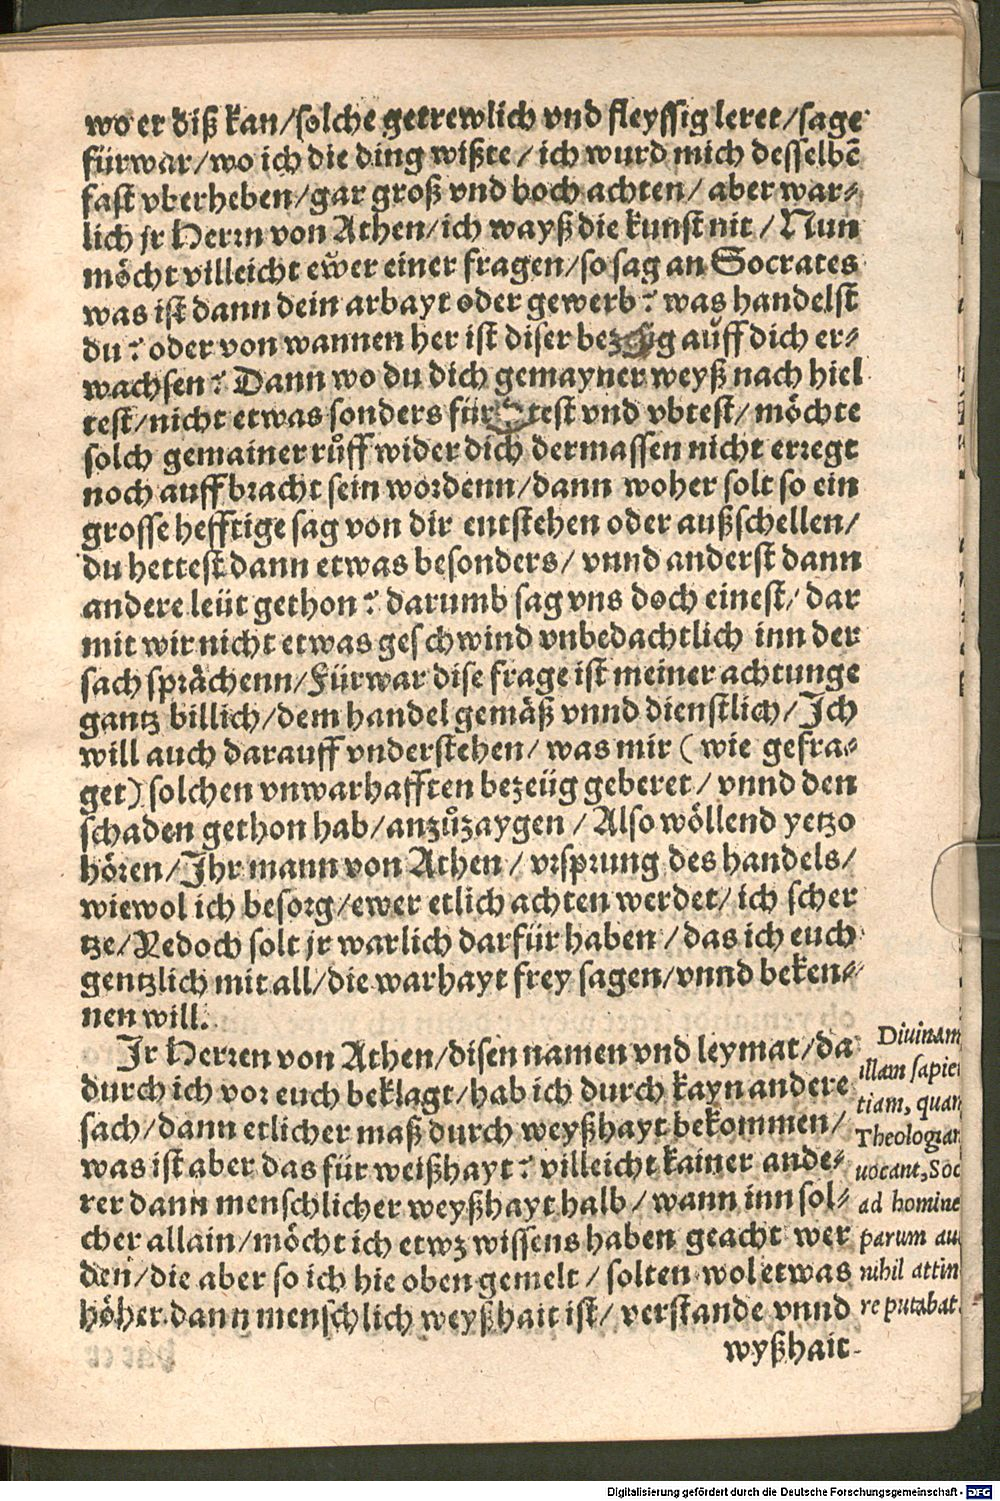 wo er diß kan/solche getrewlich vnd fleyssig leret/sage
fürwar/wo ich die ding wißte/ich wurd mich desselbẽ
fast vberheben/gar groß vnd hoch achten/ aber war⸗
lich jr Herrn von Athen/ich wayß die kunst nit/Nun
möcht villeicht ewer einer fragen/so sag an Socrates
was ist dann dein arbayt oder gewerb? was handelst
du? oder von wannen her ist diser auff dich er⸗
wachsen? Dann wo du dich gemayner weyß nach hiel
test/nicht etwas sonders vnd vbtest/möchte
solch gemainer růff wider dich dermassen nicht erregt
noch auffbracht sein wordenn/dann woher solt so ein
grosse hefftige sag von dir entstehen oder außschellen/
du hettest dann etwas besonders/ vnnd anderst dann
andere leüt gethon? darumb sag vns doch einest/ dar
mit wir nicht etwas geschwind vnbedachtlich inn der
sach sprächenn/Fürwar dise frage ist meiner achtunge
gantz billich/dem handel gemäß vnnd dienstlich/Ich
will auch darauff vnderstehen/ was mir (wie gefra⸗
get) solchen vnwarhafften bezeüg geberet/ vnnd den
schaden gethon hab/anzůzaygen/Also wöllend yetzo
hören/Ihr mann von Athen/vrsprung des handels/
wiewol ich besorg/ewer etlich achten werdet/ich scher
tze/Yedoch solt jr warlich darfür haben/das ich euch
gentzlich mit all/die warhayt frey sagen/vnnd beken⸗
nen will.
Ir Herren von Athen/disen namen vnd leymat/da
durch ich vor euch beklagt/hab ich durch kayn andere
sach/dann etlicher maß durch weyßhayt bekommen/
was ist aber das für weißhayt? villeicht kainer ande⸗
rer dann menschlicher weyßhayt halb/wann inn sol⸗
cher allain/möcht ich etwz wissens haben geacht wer
den/die aber so ich hie oben gemelt/solten wol etwas
höher dann menschlich weyßhait ist/verstande vnnd
wyßhait
Diuinam
illam sapien
tiam, quam
Theologiam
uocant, Soc
ad homine
parum au
nihil attin
re putabat.
Digitalisierung gefördert durch die Deutsche Forschungsgemeinschaft - DFG